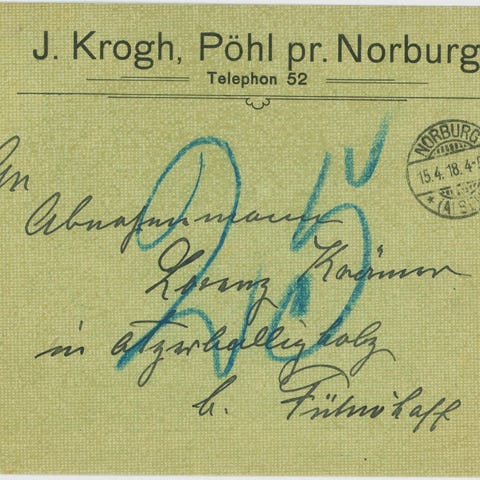 J. Krogh, Pöhl pr. Norburg
Telephon 52
NORBURG
15.4.18. 4-
* (ALS
An
Lorenz Krämer
in Atzerballigholz
b.
25